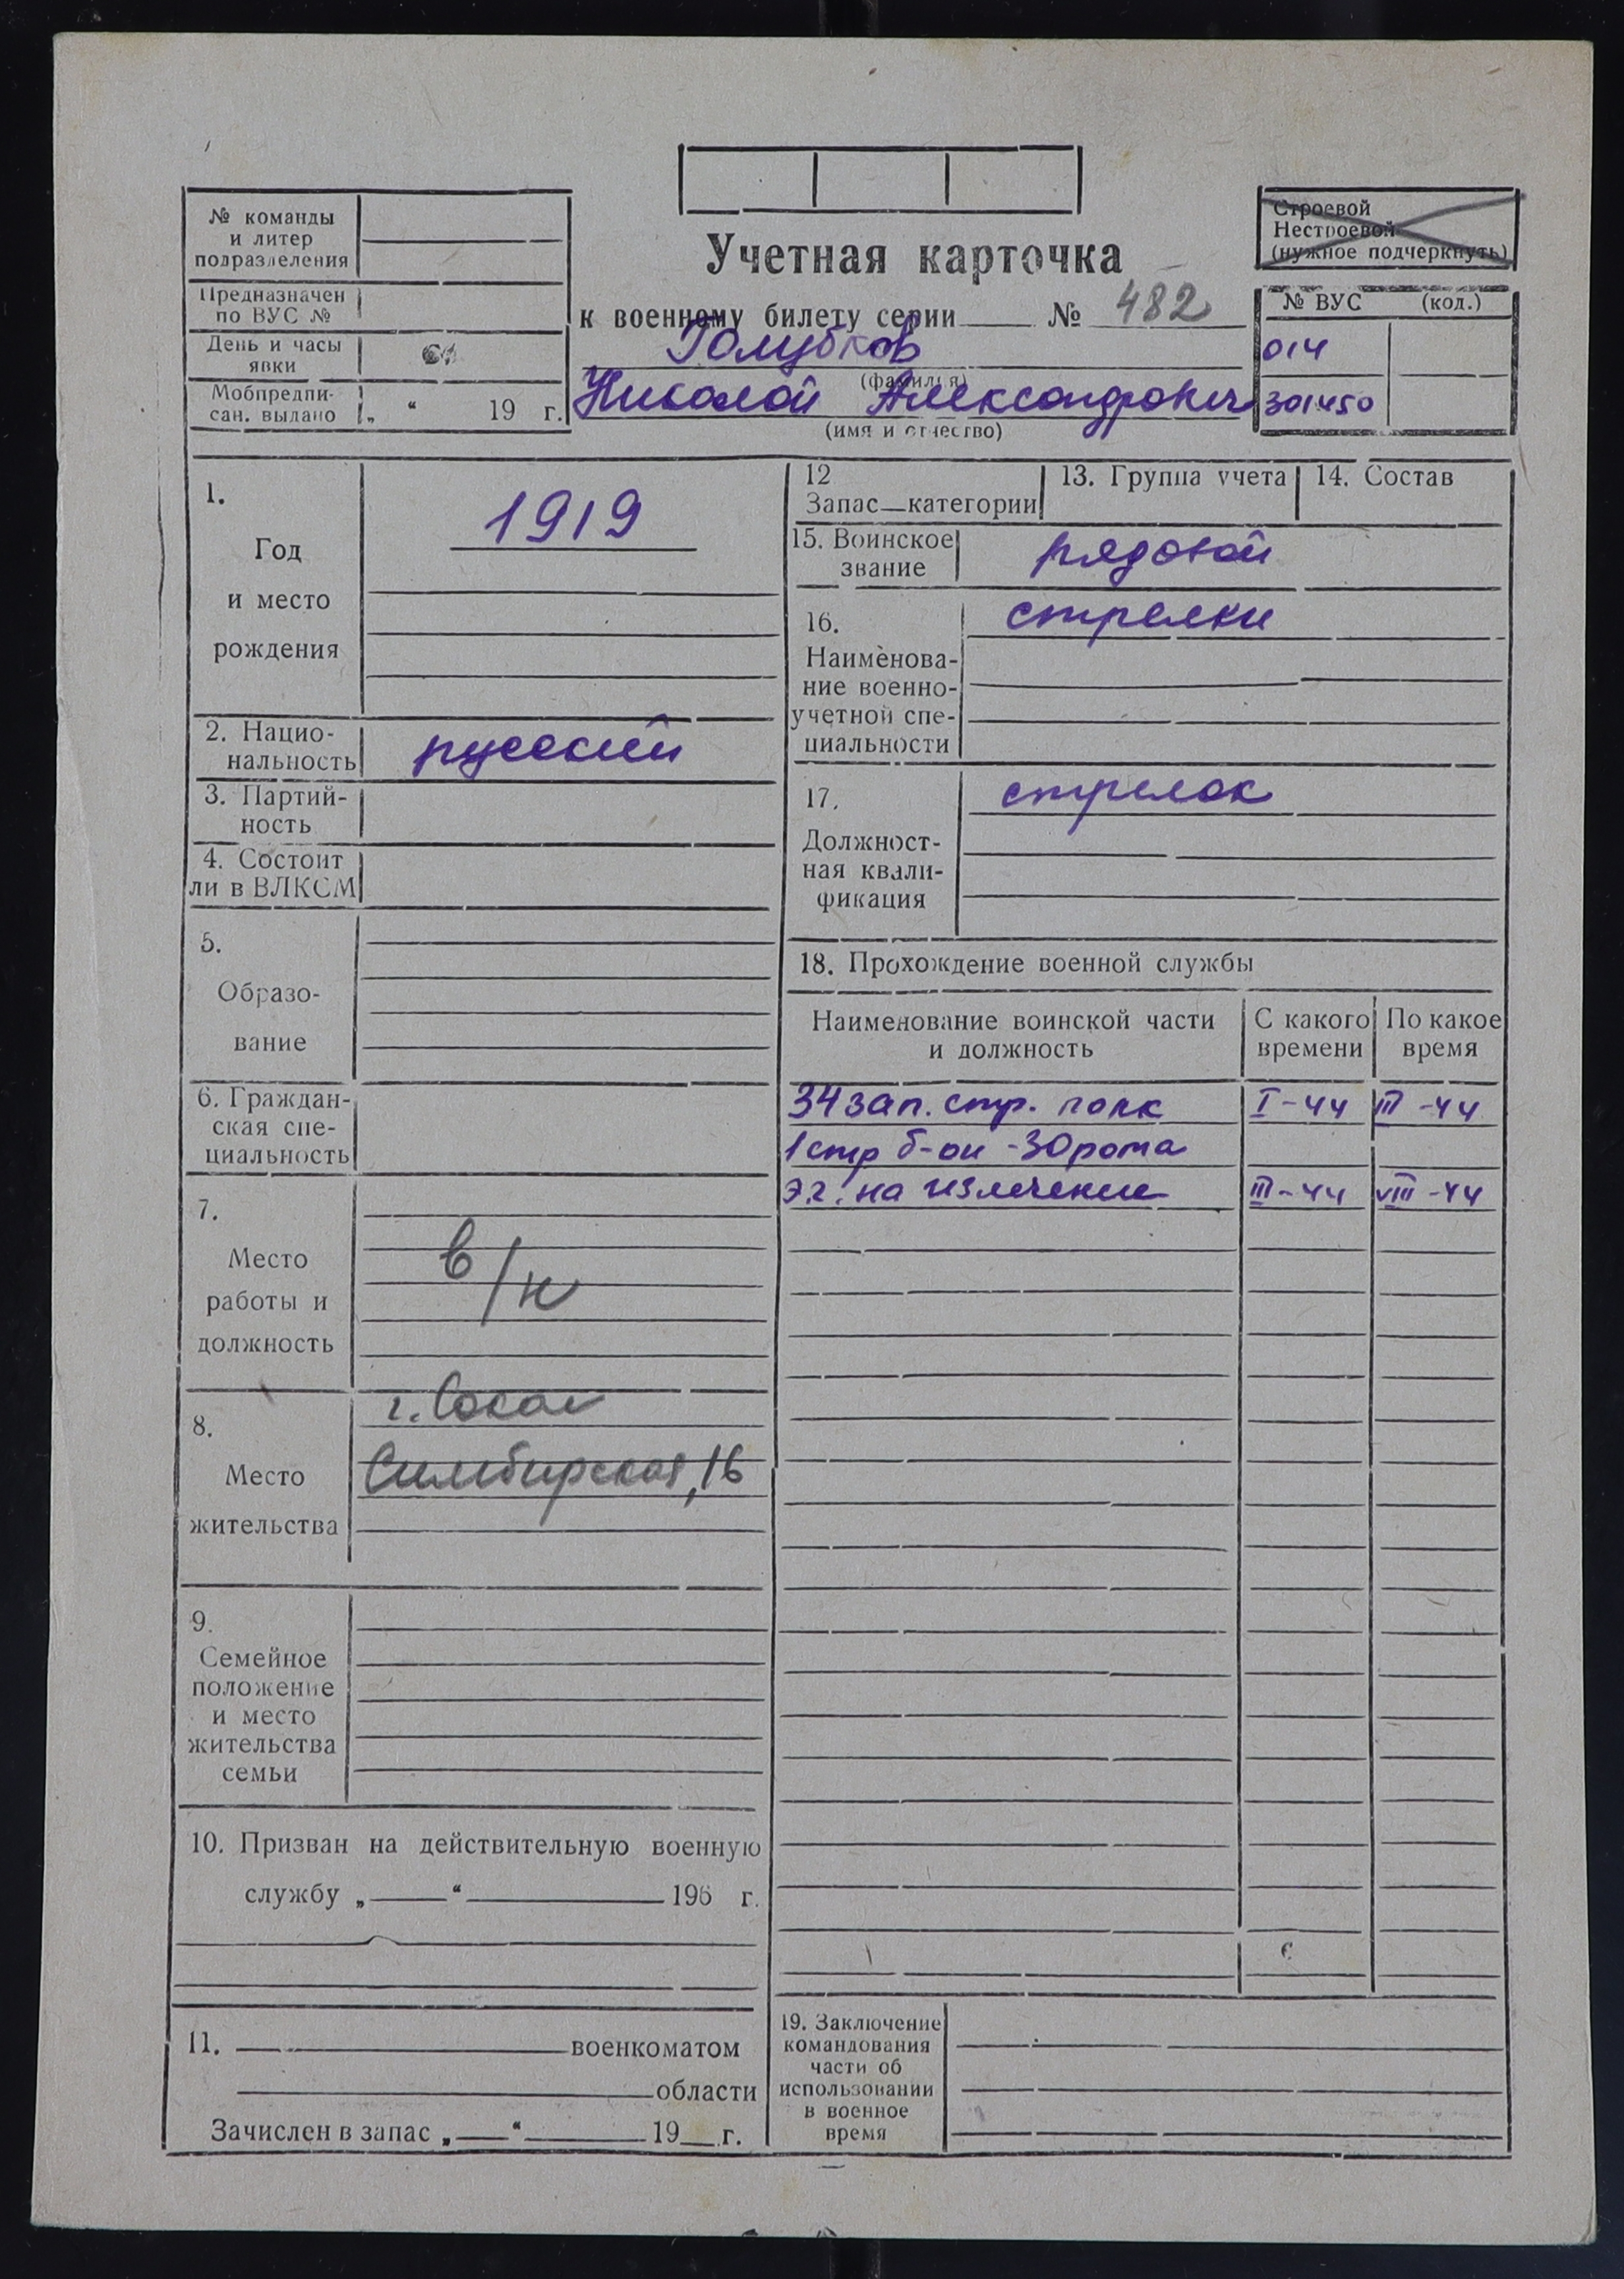 № команды
и литер
подразделения
Предназначен
по ВУС №
День и часы
явки
Мобпредпи-
сан. выдано „ “ 19 г.
Учетная карточка
к военному билету серии № 482
Голубков
(фамилия)
Николай Александрович
(имя и отчество)
Строевой
Нестроевой
(нужное подчеркнуть)
№ ВУС (код.)
014
301450
1.
Год
и место
рождения
1919
2. Нацио-
нальность
русский
3. Партий-
ность
4. Состоит
ли в ВЛКСМ
5.
Образо-
вание
6. Граждан-
ская спе-
циальность
7.
Место
работы и
должность
в/н
8.
Место
жительства
г. Сокол
Симбирская, 16
9.
Семейное
положение
и место
жительства
семьи
10. Призван на действительную военную
службу „ “ 196 г.
11. военкоматом
области
Зачислен в запас „ “ 19 г.
12
Запас—категории
13. Группа учета
14. Состав
15. Воинское
звание
рядовой
16.
Наименова-
ние военно-
учетной спе-
циальности
стрелки
17.
Должност-
ная квали-
фикация
стрелок
18. Прохождение военной службы
Наименование воинской части
и должность
С какого
времени
По какое
время
34 зап. стр. полк I-44 III-44
1 стр б-он - 30 рота
э.г. на излечение III-44 VIII-44
19. Заключение
командования
части об
использовании
в военное
время